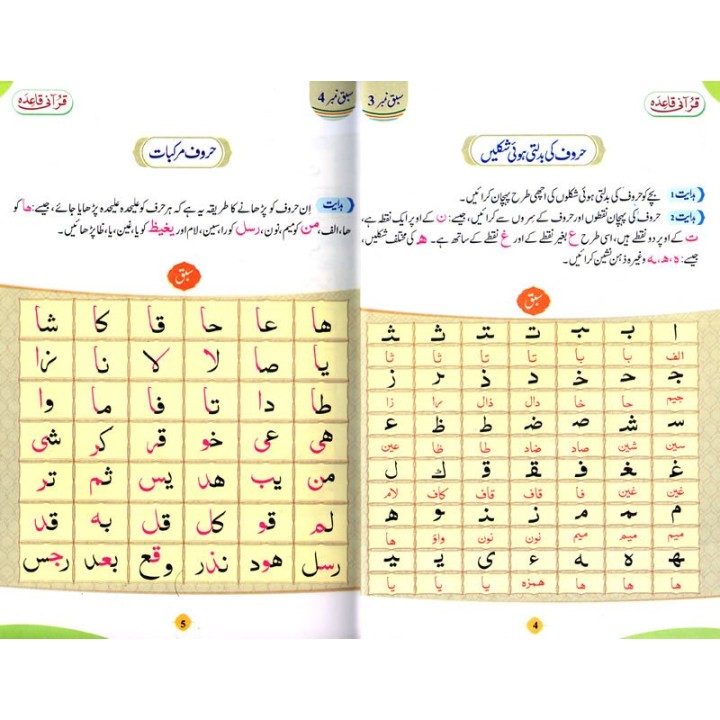 قرآنی قاعدہ
سبق نمبر 3
حروف کی بدلتی ہوئی شکلیں
ہدایت 1 بچے کو حروف کی بدلتی ہوئی شکلوں کی اچھی طرح پہچان کرائیں۔
ہدایت 2 حروف کی پہچان نقطوں اور حروف کے سروں سے کرائیں، جیسے: ن کے اوپر ایک نقطہ ہے،
ت کے اوپر دو نقطے ہیں، اسی طرح ع بغیر نقطے کے اور غ نقطے کے ساتھ ہے۔ ھ کی مختلف شکلیں،
جیسے: ہ، ھ، ہ وغیرہ ذہن نشین کرائیں۔
سبق
ا بـ بـ ت تـ ث ثـ
الف با با تا تا ثا ثا
جـ حـ خـ د ذ ر ز
جیم حا خا دال ذال را زا
سـ شـ صـ ضـ ط ظ عـ
سین شین صاد ضاد طا ظا عین
غـ ـغـ فـ ـقـ قـ ك ل
غین غین فا قاف قاف کاف لام
مـ ـمـ م نـ ـنـ و هـ
میم میم میم نون نون واؤ ها
ـهـ ه ـه ء ی یـ یـ
ها ها ها همزہ یا یا یا
4
سبق نمبر 4
قرآنی قاعدہ
حروف مرکبات
ہدایت اِن حروف کو پڑھانے کا طریقہ یہ ہے کہ ہر حرف کو علیحدہ علیحدہ پڑھایا جائے، جیسے: ها کو
ها، الف، من کو میم، نون، رسل کو را، سین، لام اور یغیظ کو یا، غین، یا، ظا پڑھائیں۔
سبق
ها عا حا قا كا شا
یا صا لا لا نا زا
طا دا تا فا ما وا
هی عی خو قر کر شی
من یب هد یس ثم تر
لم قو كل قل به قد
رسل هود نذر وقع بعد رجس
5